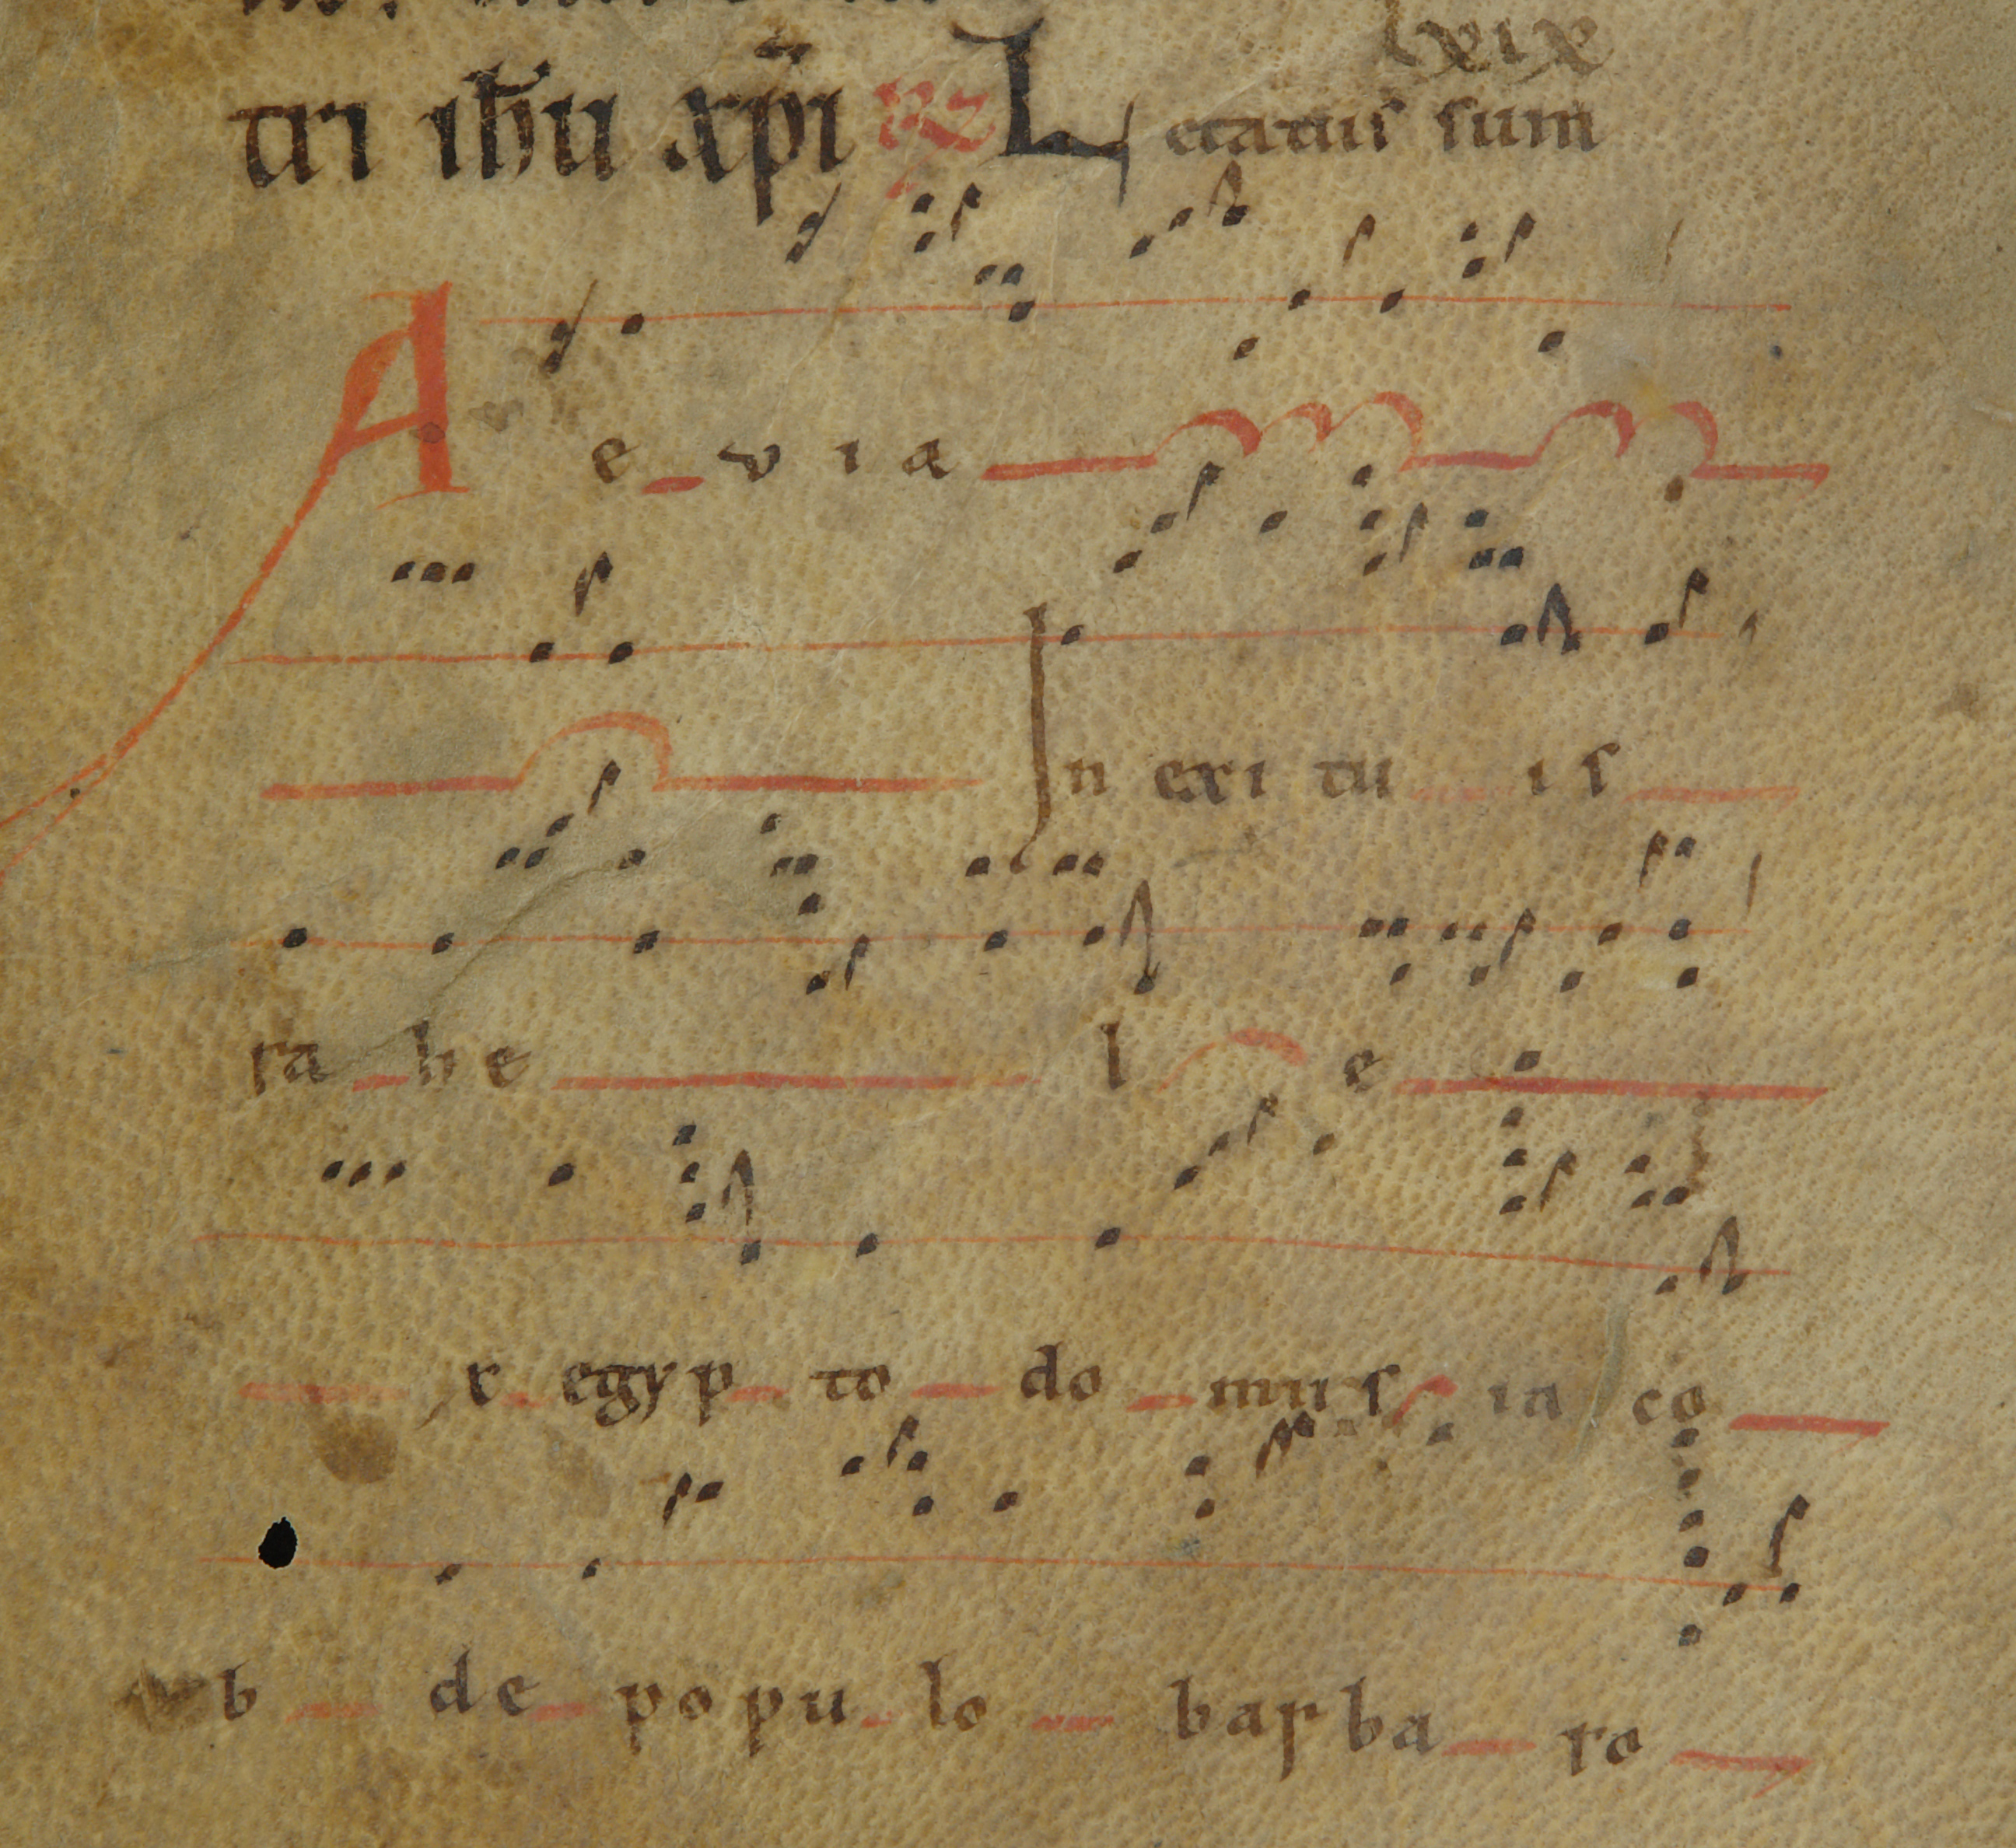 lxix
tri ihu xpi R Letatus sum
A e v i a
In exi tu is
ra he l e
x egyp to do mus ia co
b de popu lo barba ro